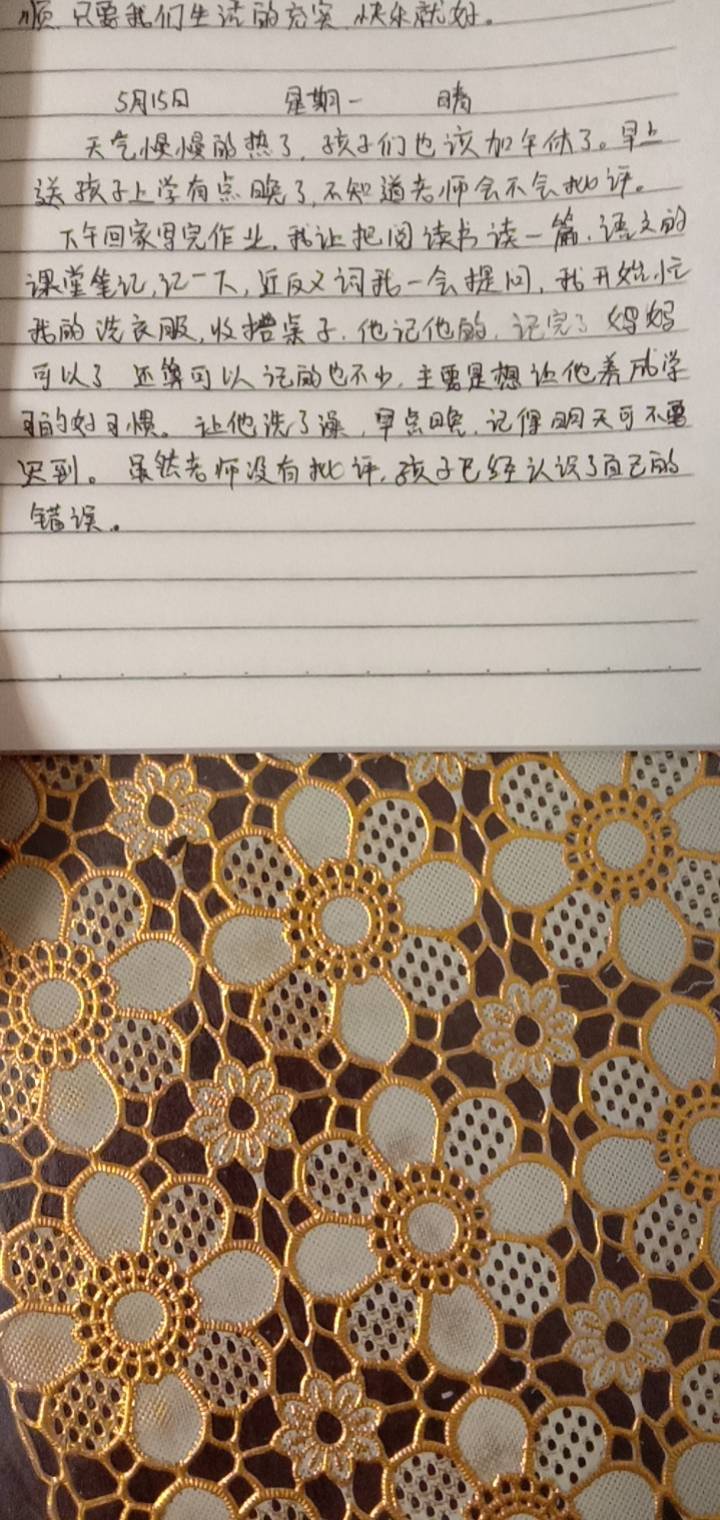 顺 只要我们生活的充实 快乐就好。
5月15日 星期一 晴
天气慢慢的热了,孩子们也该加午休了。早上
送孩子上学有点晚了,不知道老师会不会批评。
下午回家写完作业,我让把阅读书读一篇,语文的
课堂笔记,记一下,近反义词我一会提问,我开始忙
我的洗衣服,收撸桌子,他记他的,记完了 妈妈
可以了 还算可以记的也不少,主要是想让他养成学
习的好习惯。让他洗了澡,早点晚,记得明天可不要
迟到。虽然老师没有批评,孩子已经认识了自己的
错误。